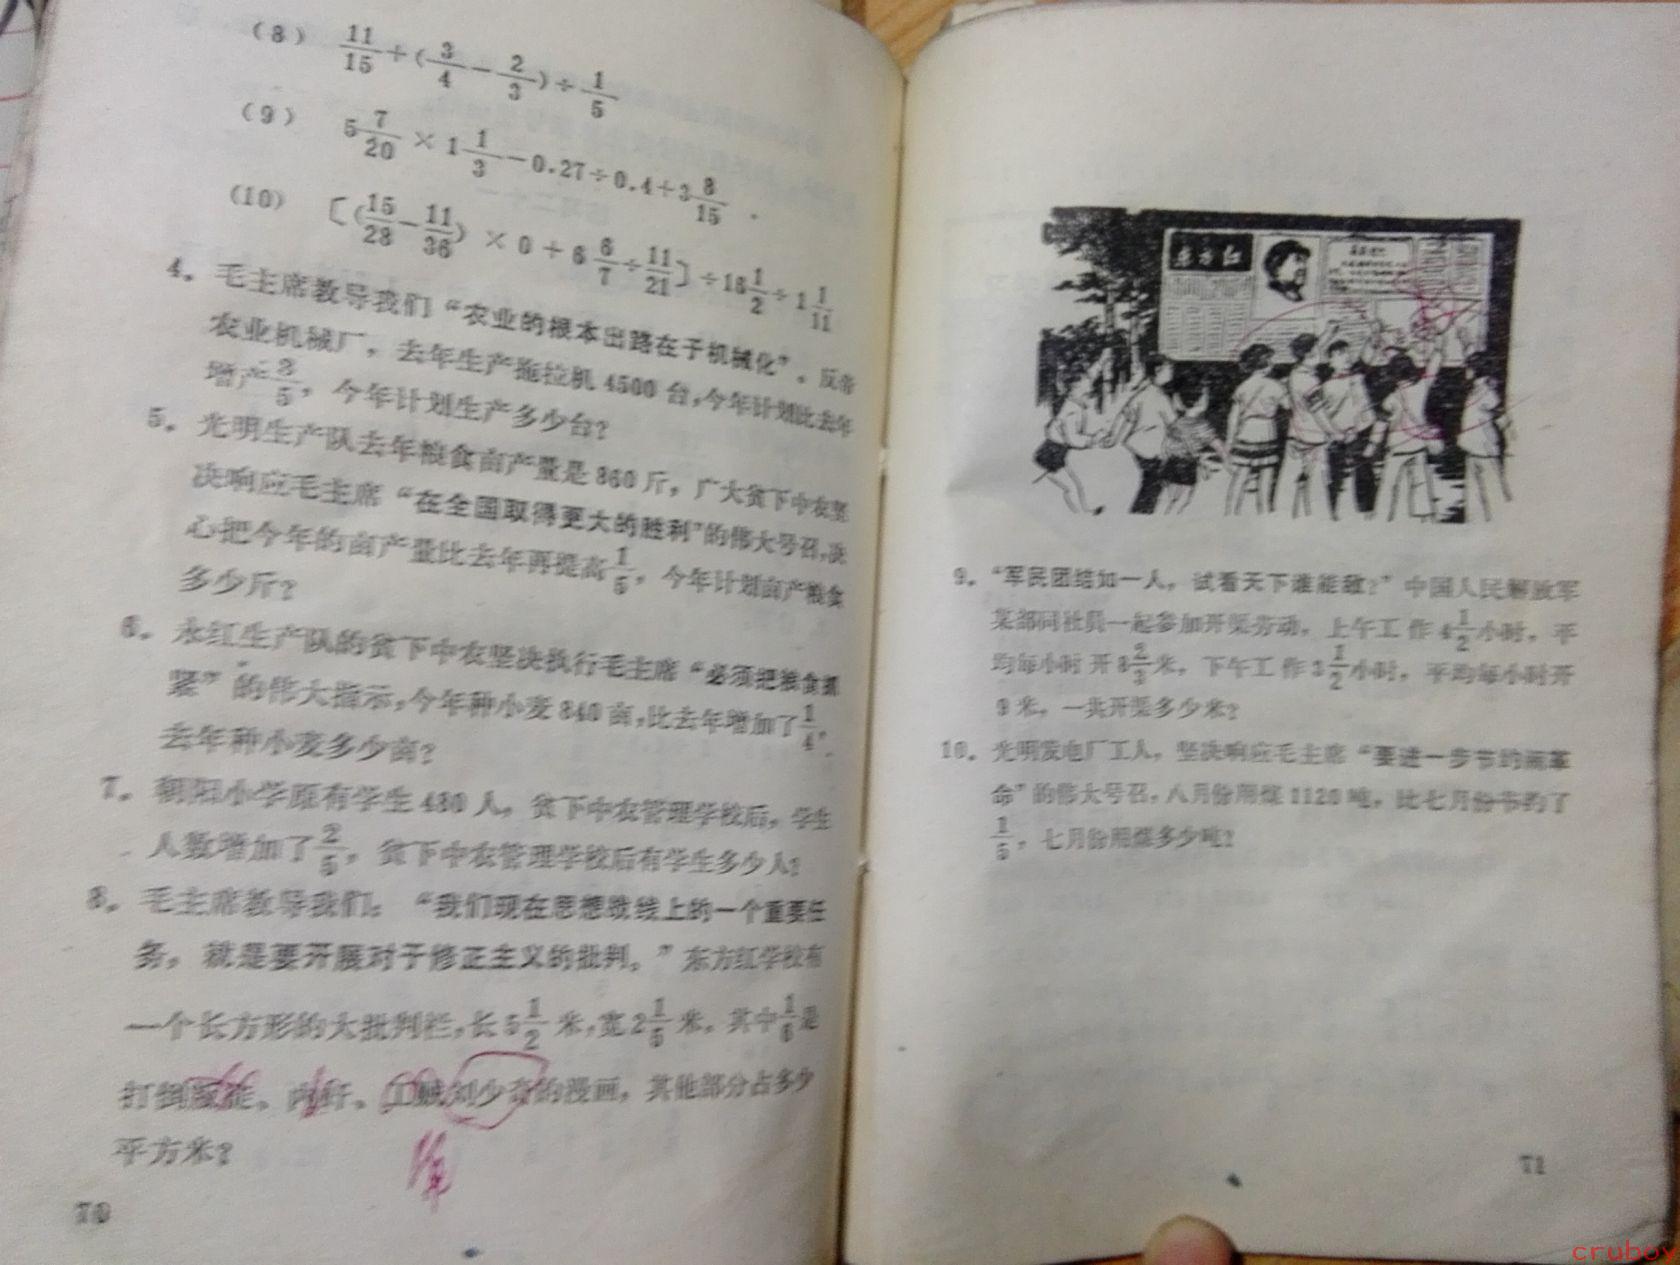 (8) 11/15+(3/4-2/3)÷1/5
(9) 5 7/20×1 1/3-0.27÷0.4+3 8/15.
(10) 〔(15/28-11/36)×0+6 6/7÷11/21〕÷16 1/2÷1 1/11
4. 毛主席教导我们“农业的根本出路在于机械化”。反帝
农业机械厂，去年生产拖拉机4500台，今年计划比去年
增产3/5，今年计划生产多少台？
5. 光明生产队去年粮食亩产量是860斤，广大贫下中农坚
决响应毛主席“在全国取得更大的胜利”的伟大号召，决
心把今年的亩产量比去年再提高1/5，今年计划亩产粮食
多少斤？
6. 永红生产队的贫下中农坚决执行毛主席“必须把粮食抓
紧”的伟大指示，今年种小麦840亩，比去年增加了1/4，
去年种小麦多少亩？
7. 朝阳小学原有学生480人，贫下中农管理学校后，学生
人数增加了2/5，贫下中农管理学校后有学生多少人？
8. 毛主席教导我们：“我们现在思想战线上的一个重要任
务，就是要开展对于修正主义的批判。”东方红学校有
一个长方形的大批判栏，长5 1/2米，宽2 1/5米，其中1/6是
打倒叛徒、内奸、工贼刘少奇的漫画，其他部分占多少
平方米？
70
东方红
9. “军民团结如一人，试看天下谁能敌？”中国人民解放军
某部同社员一起参加开渠劳动，上午工作4 1/2小时，平
均每小时开8 2/3米，下午工作3 1/2小时，平均每小时开
9米，一共开渠多少米？
10. 光明发电厂工人，坚决响应毛主席“要进一步节约闹革
命”的伟大号召，八月份用煤1120吨，比七月份节约了
1/5，七月份用煤多少吨？
71
crubov